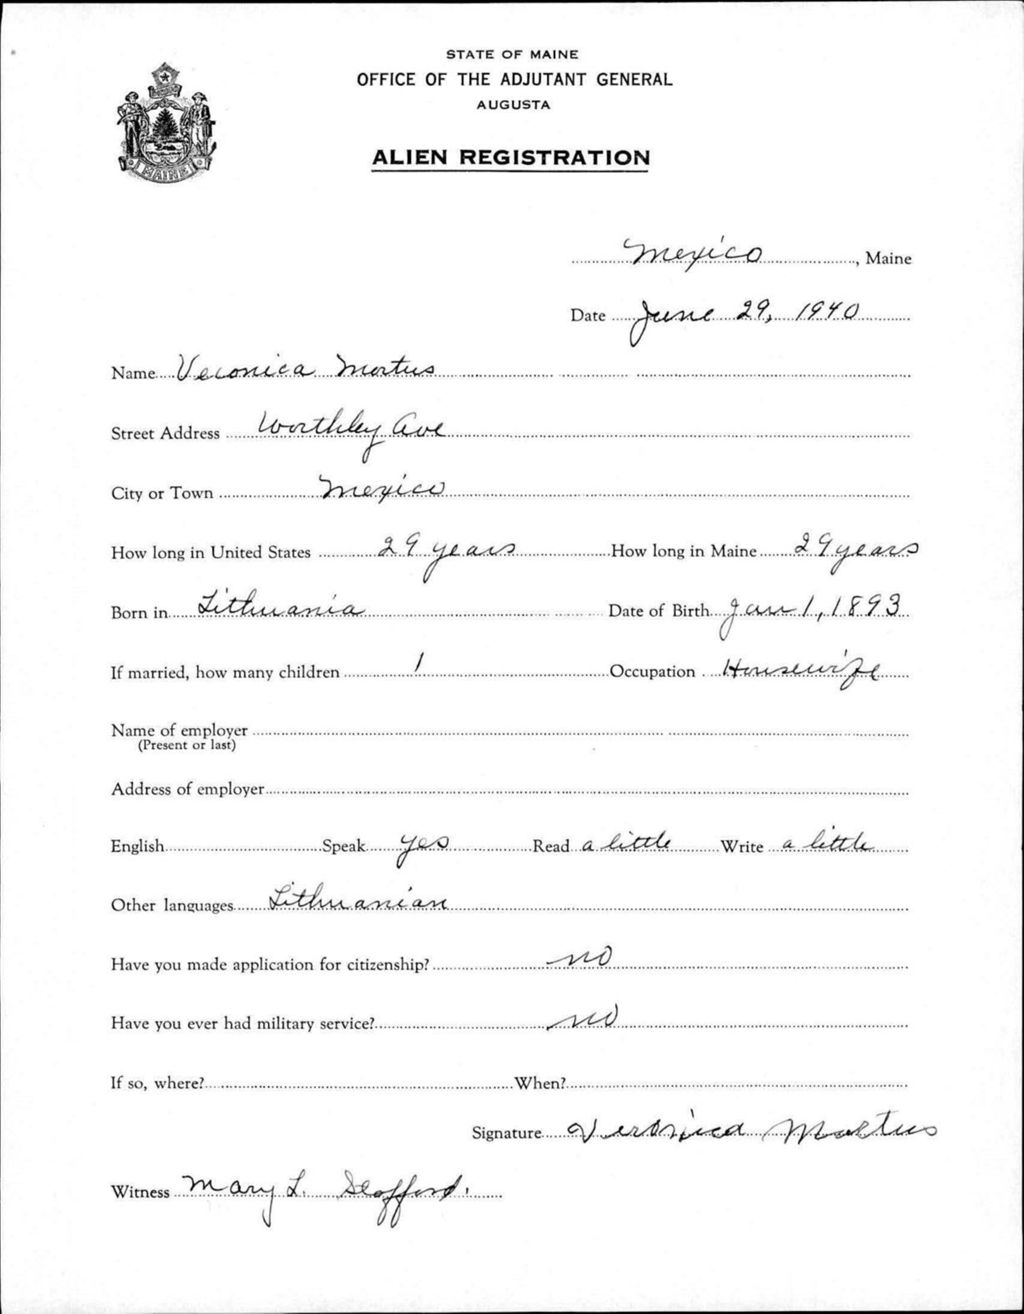 STATE OF MAINE
OFFICE OF THE ADJUTANT GENERAL
AUGUSTA
ALIEN REGISTRATION
MAINE
Mexico, Maine
Date June 29, 1940
Name Veronica Mortus
Street Address Worthley Ave
City or Town Mexico
How long in United States 29 years How long in Maine 29 years
Born in Lithuania Date of Birth Jan 1, 1893
If married, how many children 1 Occupation Housewife
Name of employer
(Present or last)
Address of employer
English Speak yes Read a little Write a little
Other languages Lithuanian
Have you made application for citizenship? no
Have you ever had military service? no
If so, where? When?
Signature Veronica Mortus
Witness Mary L.